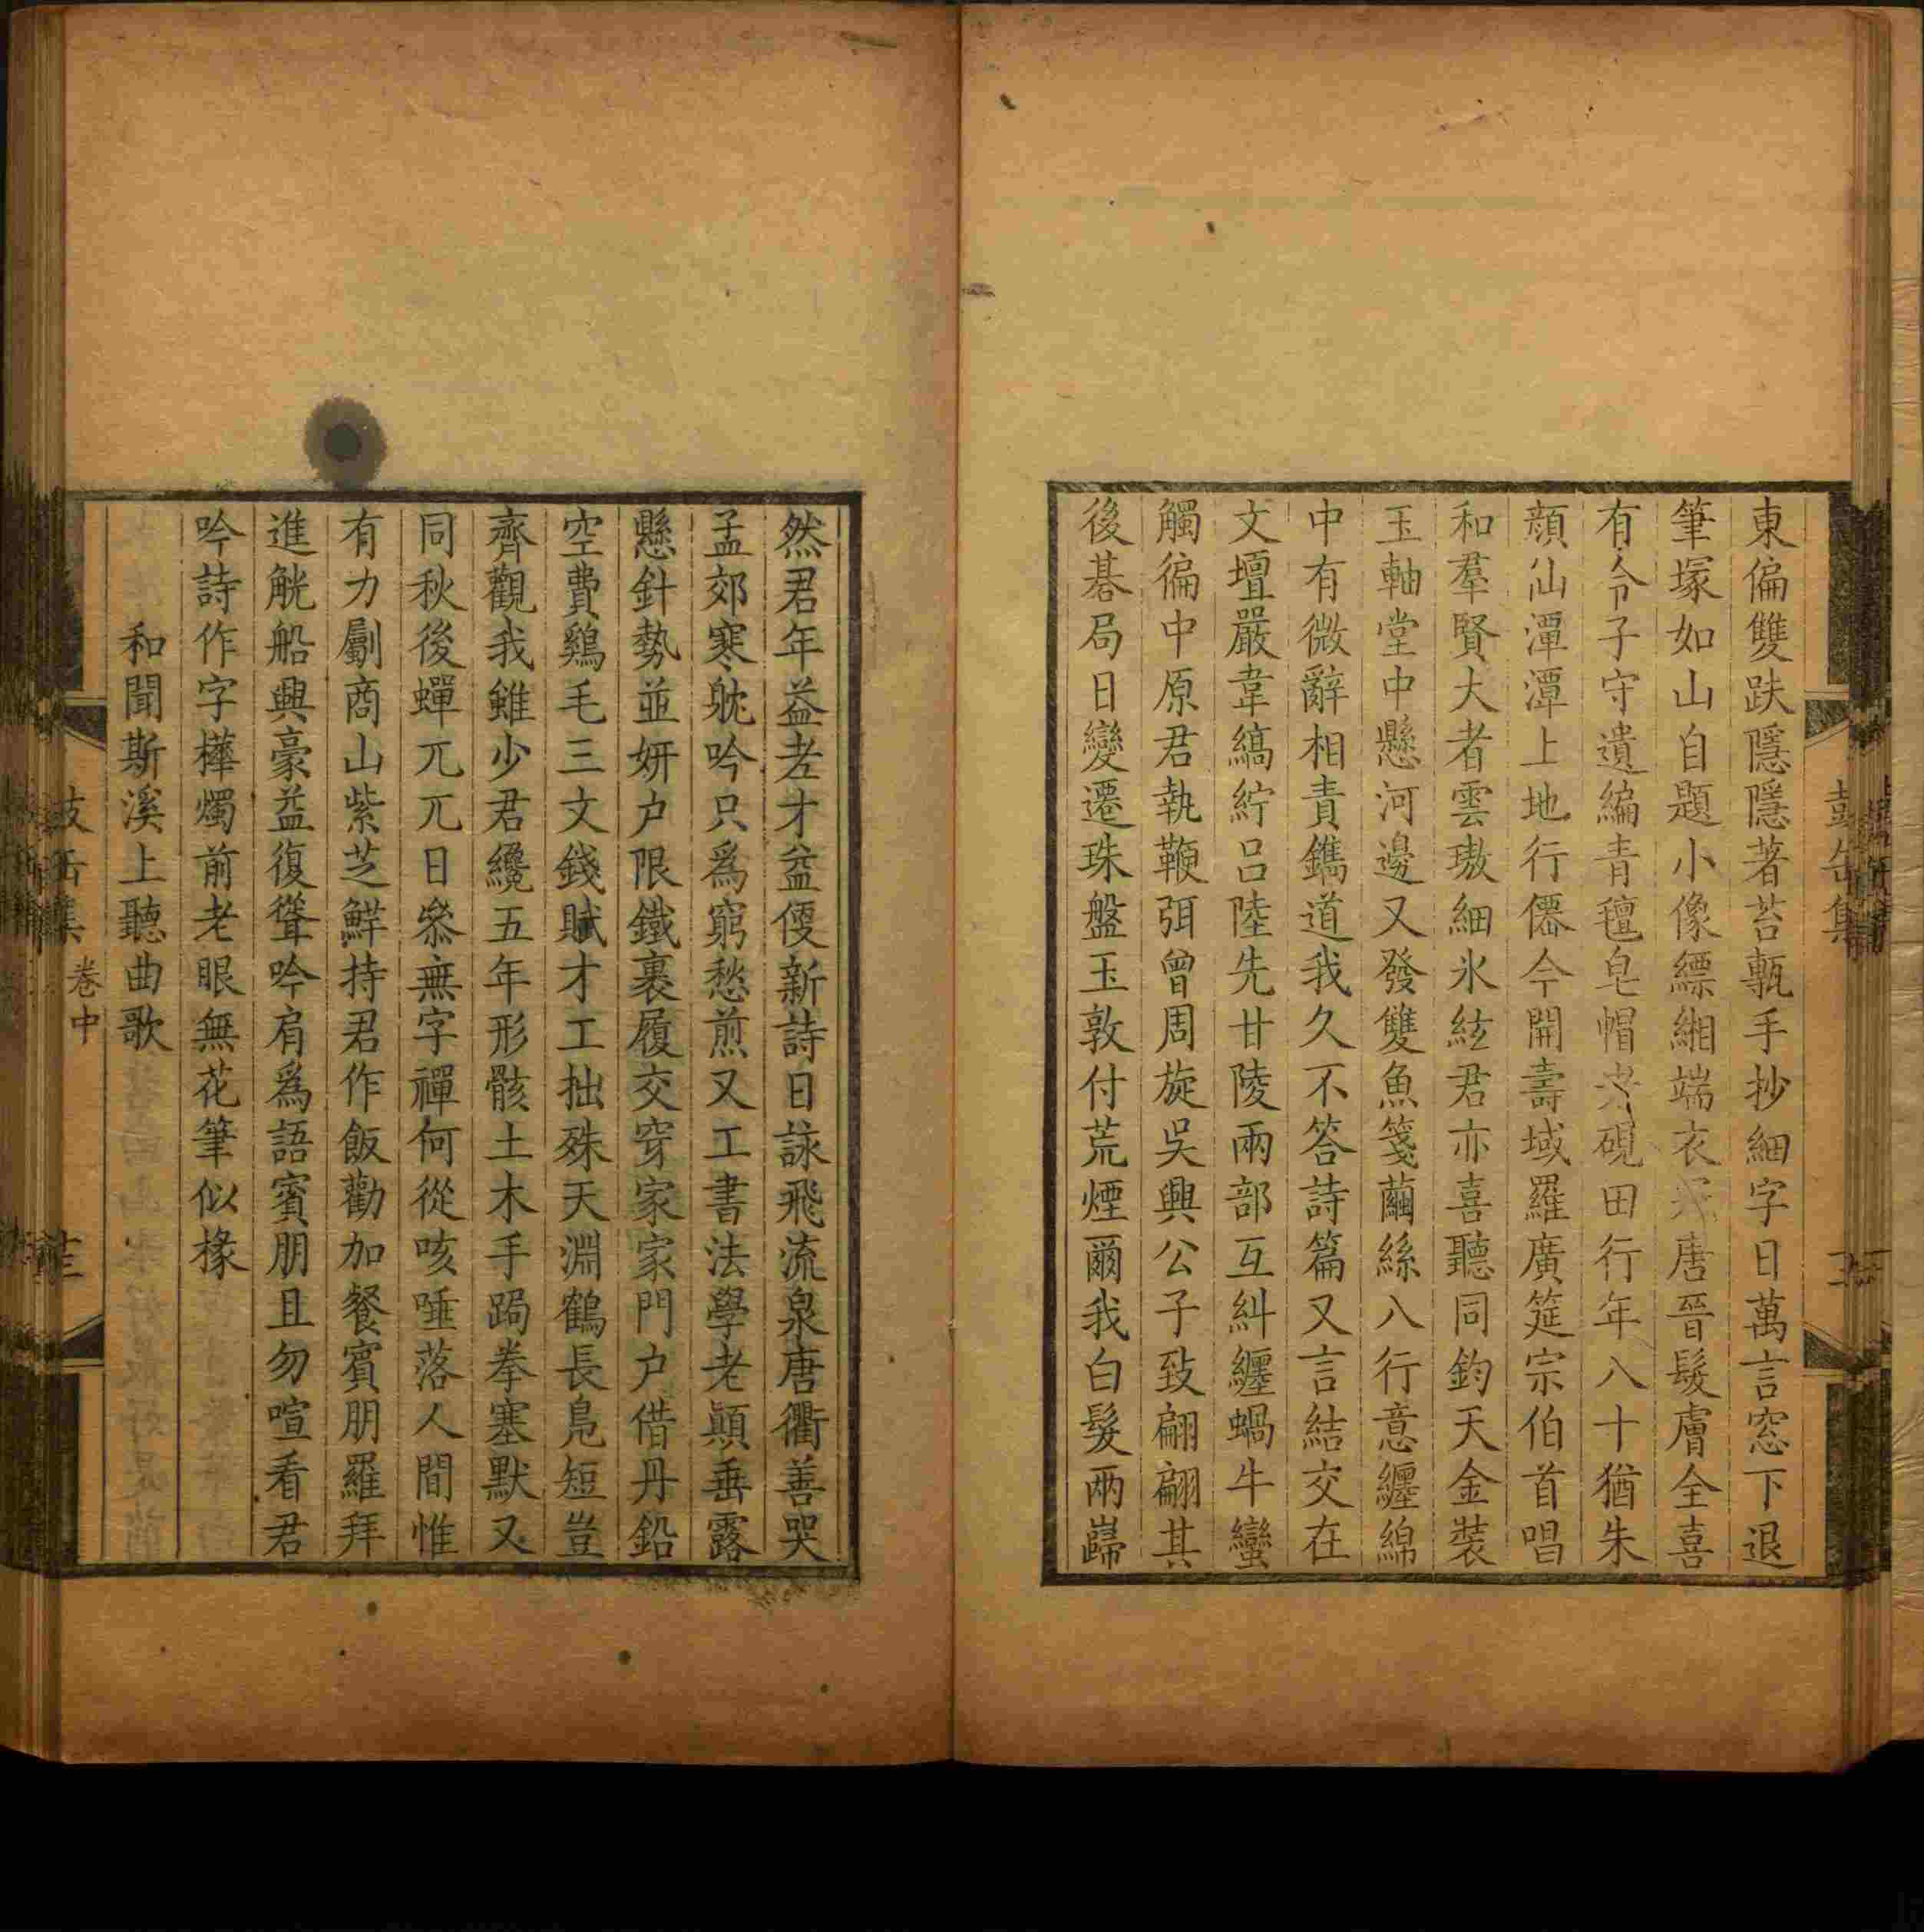 東偏雙趺隱隱著苔甎手抄細字日萬言窓下退
筆塚如山自題小像縹緗端衣唐晉髮膚全喜
有令子守遺編青氊皂帽硯田行年八十猶朱
顔仙潭潭上地行僊今開壽域羅廣筵宗伯首唱
和羣賢大者雲璈細氷絃君亦喜聽同鈞天金裝
玉軸堂中懸河邊又發雙魚箋繭絲八行意纏綿
中有微辭相責鐫道我久不答詩篇又言結交在
文壇嚴韋縞紵吕陸先甘陵兩部互糾纒蝸牛蠻
觸徧中原君執鞭弭曾周旋吳興公子致翩翩其
後碁局日變遷珠盤玉敦付荒煙爾我白髮兩巋
然君年益老才益優新詩日詠飛流泉唐衢善哭
孟郊寒躭吟只爲窮愁煎又工書法學老顚垂露
懸針勢並妍户限鐵裹履交穿家家門户借丹鉛
空費鷄毛三文錢賦才工拙殊天淵鶴長鳧短豈
齊觀我雖少君纔五年形骸土木手跼拳塞默又
同秋後蟬兀兀日叅無字禪何從咳唾落人間惟
有力劚商山紫芝鮮持君作飯勸加餐賓朋羅拜
進觥船興豪益復聳吟肩爲語賓朋且勿喧看君
吟詩作字椽燭前老眼無花筆似椽
和聞斯溪上聽曲歌
卷中